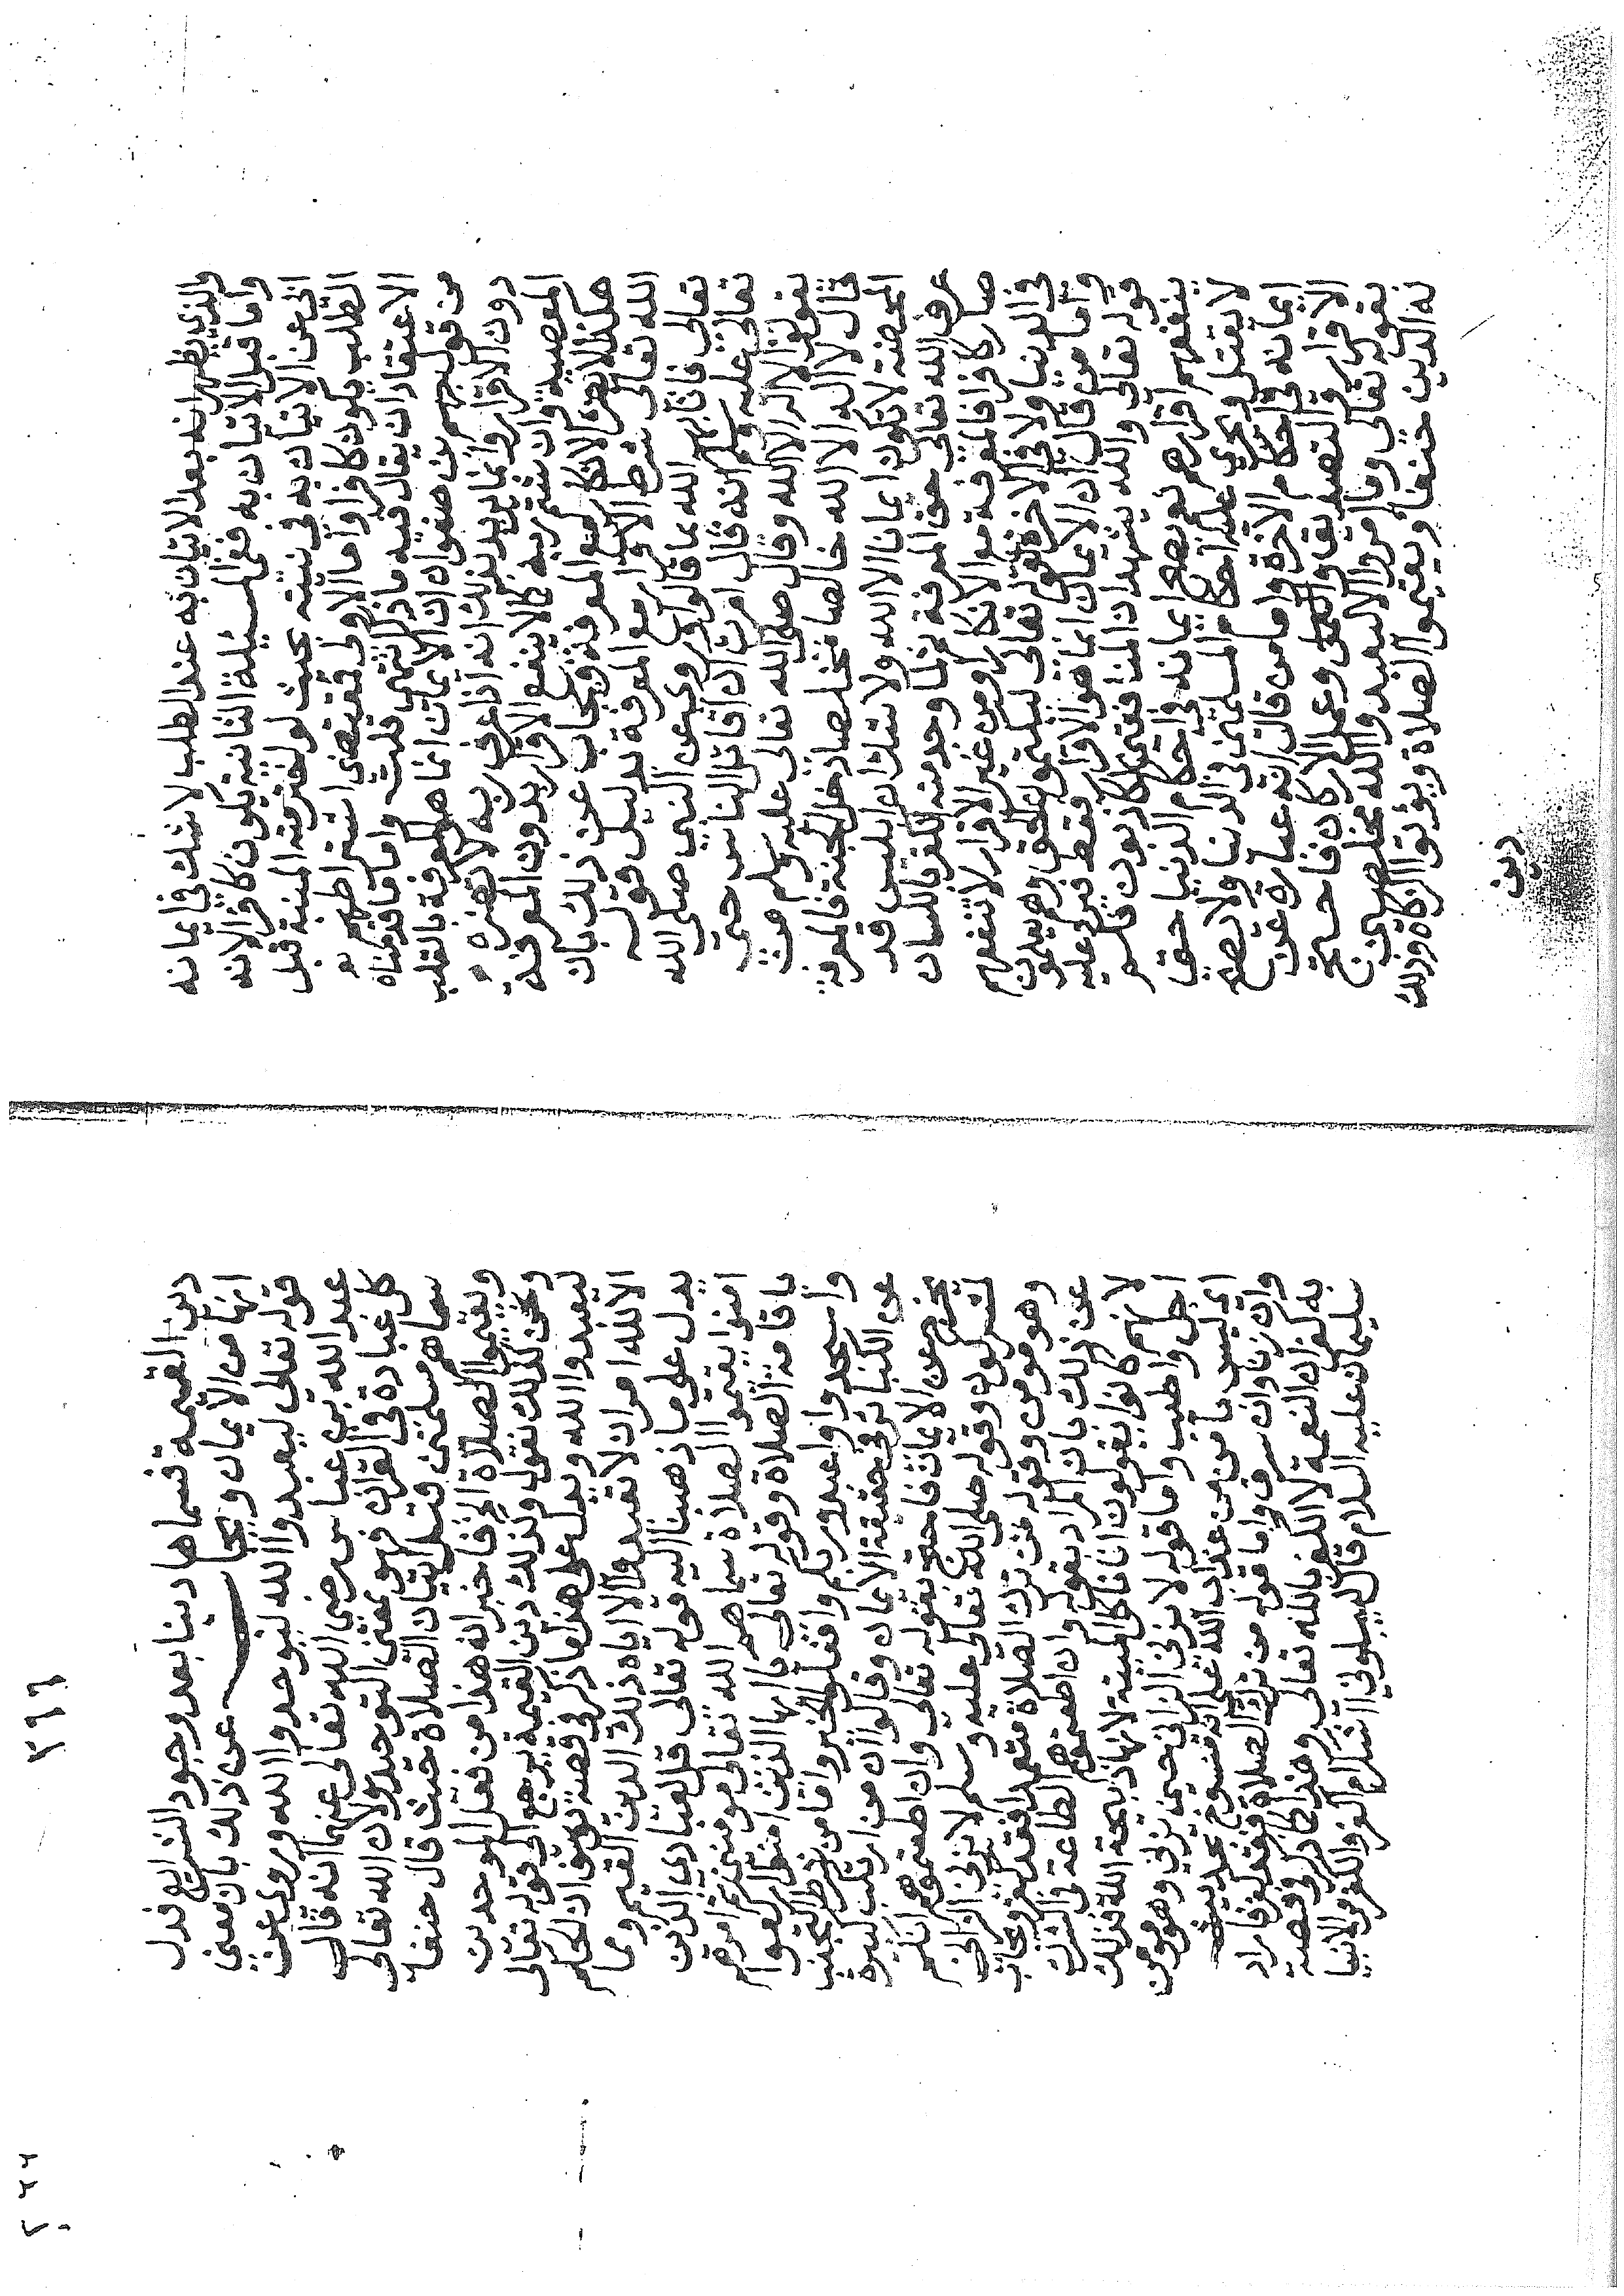 والذي يظهر انه بعد الاتيان به عند الطلب لا شك في ايمانه
واما قبل الاتيان به ففي المسئلة الثانية يكون كافرا لانه
ابى عن الاتيان به في نيته بحيث لو اخترمته المنية قبل
الطلب يكون كافرا واما الاولى فمقتضى اشتراطهم
الاعتقاد ان يقال فيه ما ذكر انتهى قلت واما ما قدمناه
من قول جهم بن صفوان ان الايمان انما هو المعرفة بالقلب
دون الاقرار وانما يريد بذلك انه اذا عرف ربه لا تضره
المعصية وان شتم ربه كما لا ينفع الاقرار بدون المعرفة
هكذا لا يضر الانكار مع المعرفة ويجاب عن ذلك بان
الله تعالى شرط الاقرار مع المعرفة بدليل قوله
تعالى فاثابهم الله بما قالوا وروي عن النبي صلى الله
تعالى عليه وسلم انه قال امرت ان اقاتل الناس حتى
يقولوا لا اله الا الله وقال صلى الله تعالى عليه وسلم من
قال لا اله الا الله خالصا مخلصا دخل الجنة فالمعرفة
المحضة لا تكون ايمانا الا الله ولا تترك ان ابليس قد
عرف الله تعالى حق المعرفة بذا وجد منه الكفر باللسان
صار كافرا فالمعرفة مع الانكار ومن غير الاقرار لا تنفعهم
في الدنيا ولا في الاخرة لقوله تعالى ليكتمون الحق وهم يعلمون
واما من قال ان الايمان انما هو الاقرار فقط فيرد عليه
قوله تعالى والله يشهد ان المنافقين لكاذبون فلم
ينفعهم اقرارهم نعم يصح ايمانه في احكام الدنيا حتى
لا يقتل ويجري عليه احكام المسلمين في الدنيا ولا يصح
ايمانه في احكام الاخرة واما من قال انه عبارة عن
الاقرار والتصديق والعمل وعمل الاركان فاحتج
بقوله تعالى وما امروا الا ليعبدوا الله مخلصين
له الدين حنفاء ويقيموا الصلاة ويؤتوا الزكاة وذلك
دين
٢٦٦
دين القيمة فسماها دينا بعد وجود الشرايع فدل
انها من الايمان ويجاب عن ذلك بان معنى
قوله تعالى ليعبدوا الله ليوحدوا الله وروي عن
عبد الله بن عباس رضي الله تعالى عنهما انه قال
كل عبادة في القران فهو بمعنى التوحيد ولان الله تعالى
سماهم مسلمين قبل اتيان الصلاة حيث قال حنفاء
ويقيموا الصلاة الخ فاخبر انه هذا من فعل الموحدين
ونحن كذلك نقول وذلك دين القيمة يرجع الى قوله تعالى
ليعبدوا الله ويدل على هذا ما ذكر في قصة يوسف ان الحكم
الا لله امر ان لا تعبدوا الا اياه ذلك الدين القيم ومما
يدل على ما ذهبنا اليه قوله تعالى قل لعبادي الذين
امنوا يقيموا الصلاة سماهم الله تعالى مومنين ثم امرهم
باقامة الصلاة وقوله تعالى يا ايها الذين امنوا اركعوا
واسجدوا واعبدوا ربكم وافعلوا الخير واما من شرط التجنب
عن الكبائر في حقيقة الايمان وقالوا ان من ارتكب كبيرة
يخرج عن الايمان فاحتج بقوله تعالى وان اطعتموهم انكم
لمشركون وقوله صلى الله تعالى عليه وسلم لا يزني الزاني
وهو مومن وقوله من ترك الصلاة متعمدا فقد كفر ويجاب
عن ذلك بان المراد بقوله وان اطعتموهم الطاعة في الشرك
لانهم كانوا يقولون انا ناكل الميتة لانها ذبيحة الله فذلك
احل واطيب واما قوله لا يزني الزاني حين يزني وهو مومن
اي ليس بامن من عذاب الله ثم انه منسوخ بحديث
وان زنا وان سرق واما قوله من ترك الصلاة فقد كفر فاراد
به كفران النعمة لا الكفر بالله تعالى وهذا كما ذكر في قصة
سليمان عليه السلام قال ليبلوني أاشكر ام اكفر والكفر لانبيا
٢٢٧٠